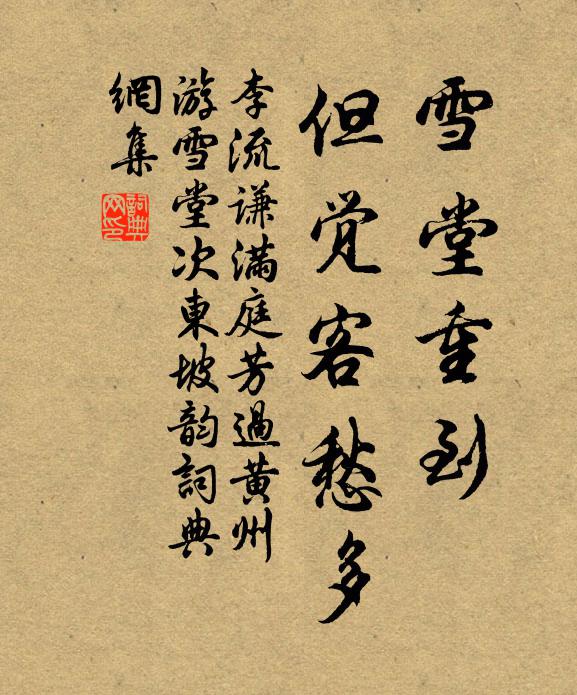 雪堂重到
但觉客愁多
李流谦满庭芳過黄州
游雪堂次東坡韵詞典
網集
詞典网印